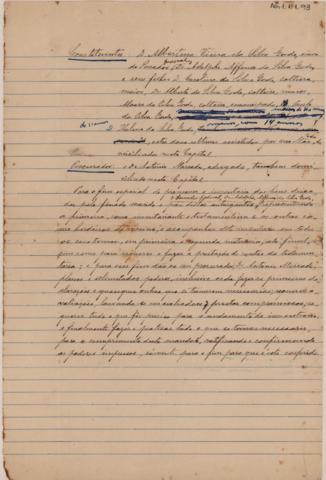 Constituentes D. Albertina Vieira da Silva Gordo, viuva
do Senador Dr. Adolpho Affonso da Silva Gordo,
e seus filhos D. Carolina da Silva Gordo, solteira,
maior, Dr. Alberto da Silva Gordo, solteiro, maior,
da Silva Gordo, solteira,
da Silva Gordo
com 14 annos
D. Helena da Silva Gordo,
estes dous ultimos assistidos por sua Mãe,
nesta Capital
Procurador: o Dr. Antonio Mercado, advogado, tambem domi-
ciliado nesta Capital
Para o fim especial de proseguir o inventario dos bens deixa-
dos por finado marido e pae dos outorgantes, representando
a primeira, como inventariante e testamenteira e os outros co-
mo herdeiros e acompanhar este inventario em todos
os seus termos, em primeira e segunda instancia, até final,
que como para requerer e fazer a prestação de contas da testamen-
taria; e para esse fim dão ao seu procurador, Dr. Antonio Mercado
plenos e illimitados poderes, inclusive os de fazer as primeiras de-
clarações e quaesquer outras que se tornarem necessarias; concordar
avaliações, louvando-se em avaliadores, prestar compromissos, re-
querer tudo que fôr preciso para o andamento do inventario,
e finalmente fazer e praticar tudo o que se tornar necessario,
para o cumprimento deste mandato, ratificando e confirmando
os poderes impressos, sómente para o fim para que é este conferido